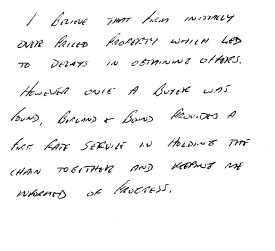 I BELIEVE THAT FIRM INITIALLY
OVER PRICED PROPERTY WHICH LED
TO DELAYS IN OBTAINING OFFERS.
HOWEVER ONCE A BUYER WAS
FOUND, & BOND PROVIDED A
FIRST RATE SERVICE IN HOLDING THE
CHAIN TOGETHER AND KEEPING ME
INFORMED OF PROGRESS.